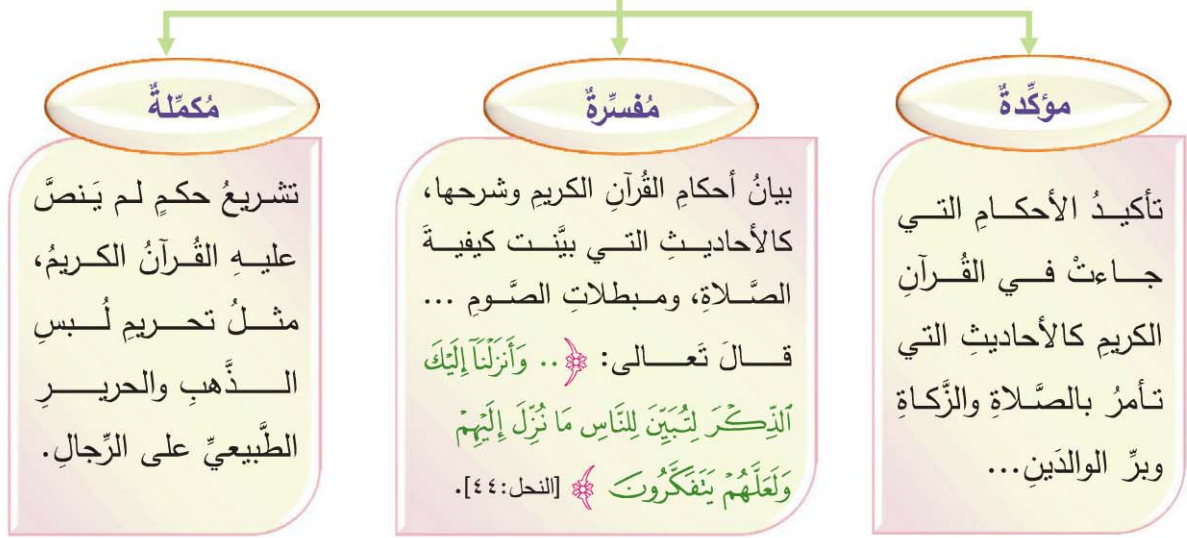 مؤكِّدةٌ
تأكيـدُ الأحكـامِ التـي
جـاءتْ فـي القُـرآنِ
الكريمِ كالأحاديثِ التي
تأمرُ بالصَّلاةِ والزَّكـاةِ
وبرِّ الوالدَينِ...
مُفسِّرةٌ
بيانُ أحكامِ القُرآنِ الكريمِ وشرحها،
كالأحاديـثِ التـي بيَّنـت كيفيـةَ
الصَّـلاةِ، ومـبطلاتِ الصَّـومِ ...
قـالَ تَعـالى: ﴿.. وَأَنزَلْنَآ إِلَيْكَ
ٱلذِّكْرَ لِتُبَيِّنَ لِلنَّاسِ مَا نُزِّلَ إِلَيْهِمْ
وَلَعَلَّهُمْ يَتَفَكَّرُونَ﴾ [النحل:٤٤].
مُكمِّلةٌ
تشريعُ حكمٍ لم يَنصَّ
عليـهِ القُـرآنُ الكـريمُ،
مثـلُ تحـريمِ لُـبسِ
الـذَّهبِ والحريـرِ
الطَّبيعيِّ على الرِّجالِ.